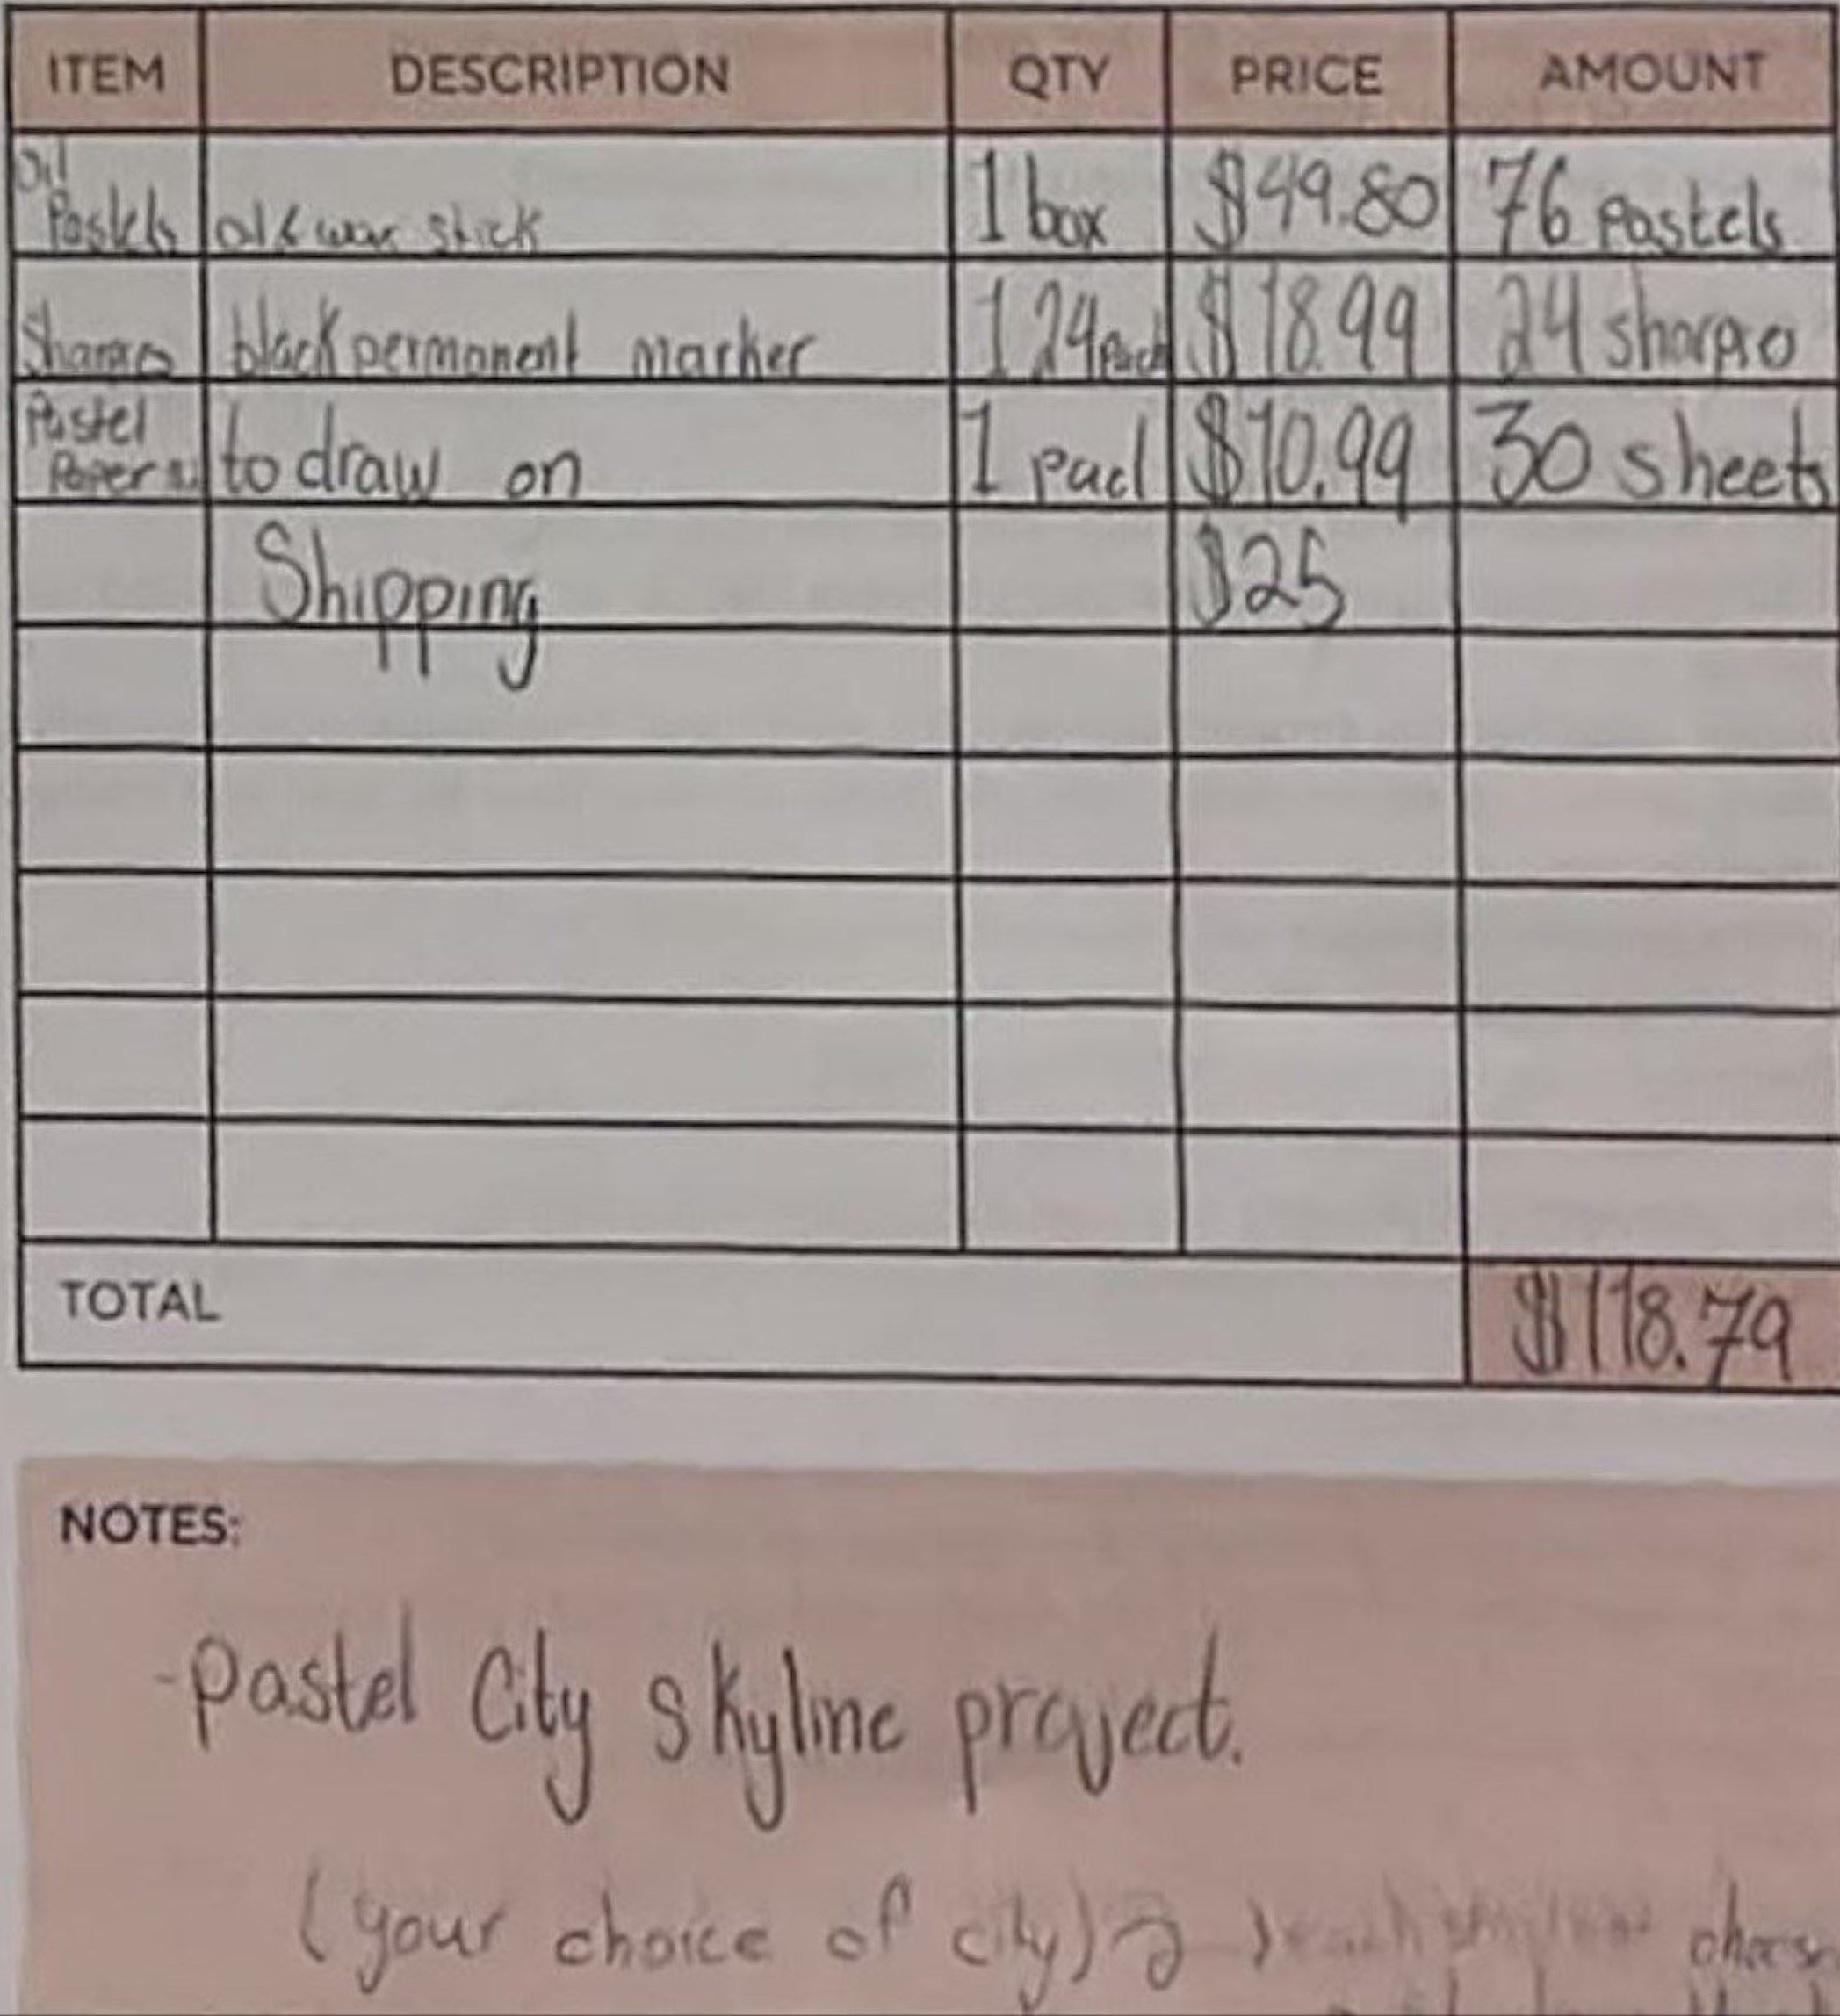 ITEM DESCRIPTION QTY PRICE AMOUNT
Oil Pastels oil & wax stick 1 box $49.80 76 pastels
black permanent marker 1 24 pack $18.99 24 sharpie
Pastel Paper to draw on 1 pad $10.99 30 sheets
Shipping $25
TOTAL $118.79
NOTES:
-pastel City skyline project.
(your choice of city)